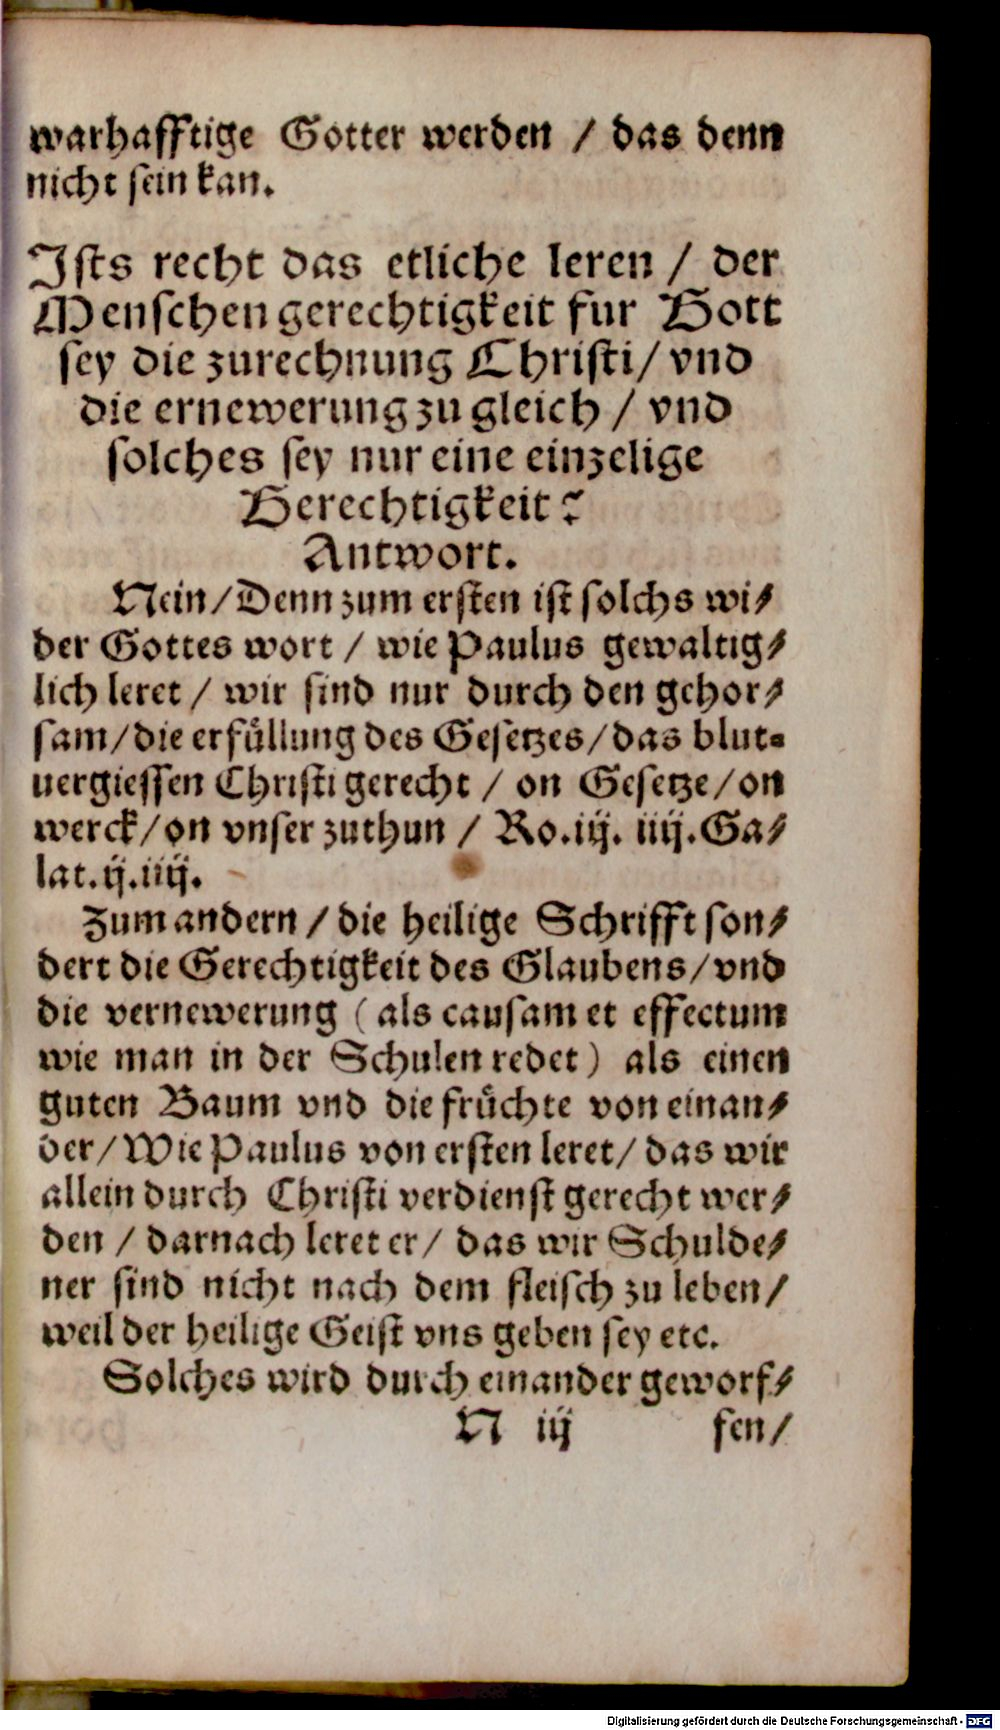 warhafftige Gotter werden / das denn
nicht sein kan.
Ists recht das etliche leren / der
Menschen gerechtigkeit fur Gott
sey die zurechnung Christi / vnd
die ernewerung zu gleich / vnd
solches sey nur eine einzelige
Gerechtigkeit?
Antwort.
Nein / Denn zum ersten ist solchs wi⸗
der Gottes wort / wie Paulus gewaltig⸗
lich leret / wir sind nur durch den gehor⸗
sam / die erfüllung des Gesetzes / das blut⸗
uergiessen Christi gerecht / on Gesetze / on
werck / on vnser zuthun / Ro. iij. iiij. Ga⸗
lat. ij. iiij.
Zum andern / die heilige Schrifft son⸗
dert die Gerechtigkeit des Glaubens / vnd
die vernewerung (als causam et effectum
wie man in der Schulen redet) als einen
guten Baum vnd die früchte von einan⸗
der / Wie Paulus von ersten leret / das wir
allein durch Christi verdienst gerecht wer⸗
den / darnach leret er / das wir Schulde⸗
ner sind nicht nach dem fleisch zu leben /
weil der heilige Geist vns geben sey etc.
Solches wird durch einander geworf⸗
N iij fen /
Digitalisierung gefördert durch die Deutsche Forschungsgemeinschaft - DFG